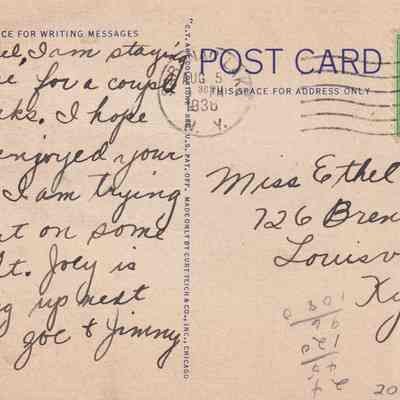 CE FOR WRITING MESSAGES
el, I am stayin
e for a coupl
eks. I hope
enjoyed your
I am trying
at on some
t. Joey is
g up next
Zoe & Jimmy
"C.T. ART-COLORTONE" REG. U.S. PAT. OFF. MADE ONLY BY CURT TEICH & CO., INC., CHICAGO
POST CARD
THIS SPACE FOR ADDRESS ONLY
AUG 5
1938
N. Y.
Miss Ethel
726 Bren
Louisv
Ky
20